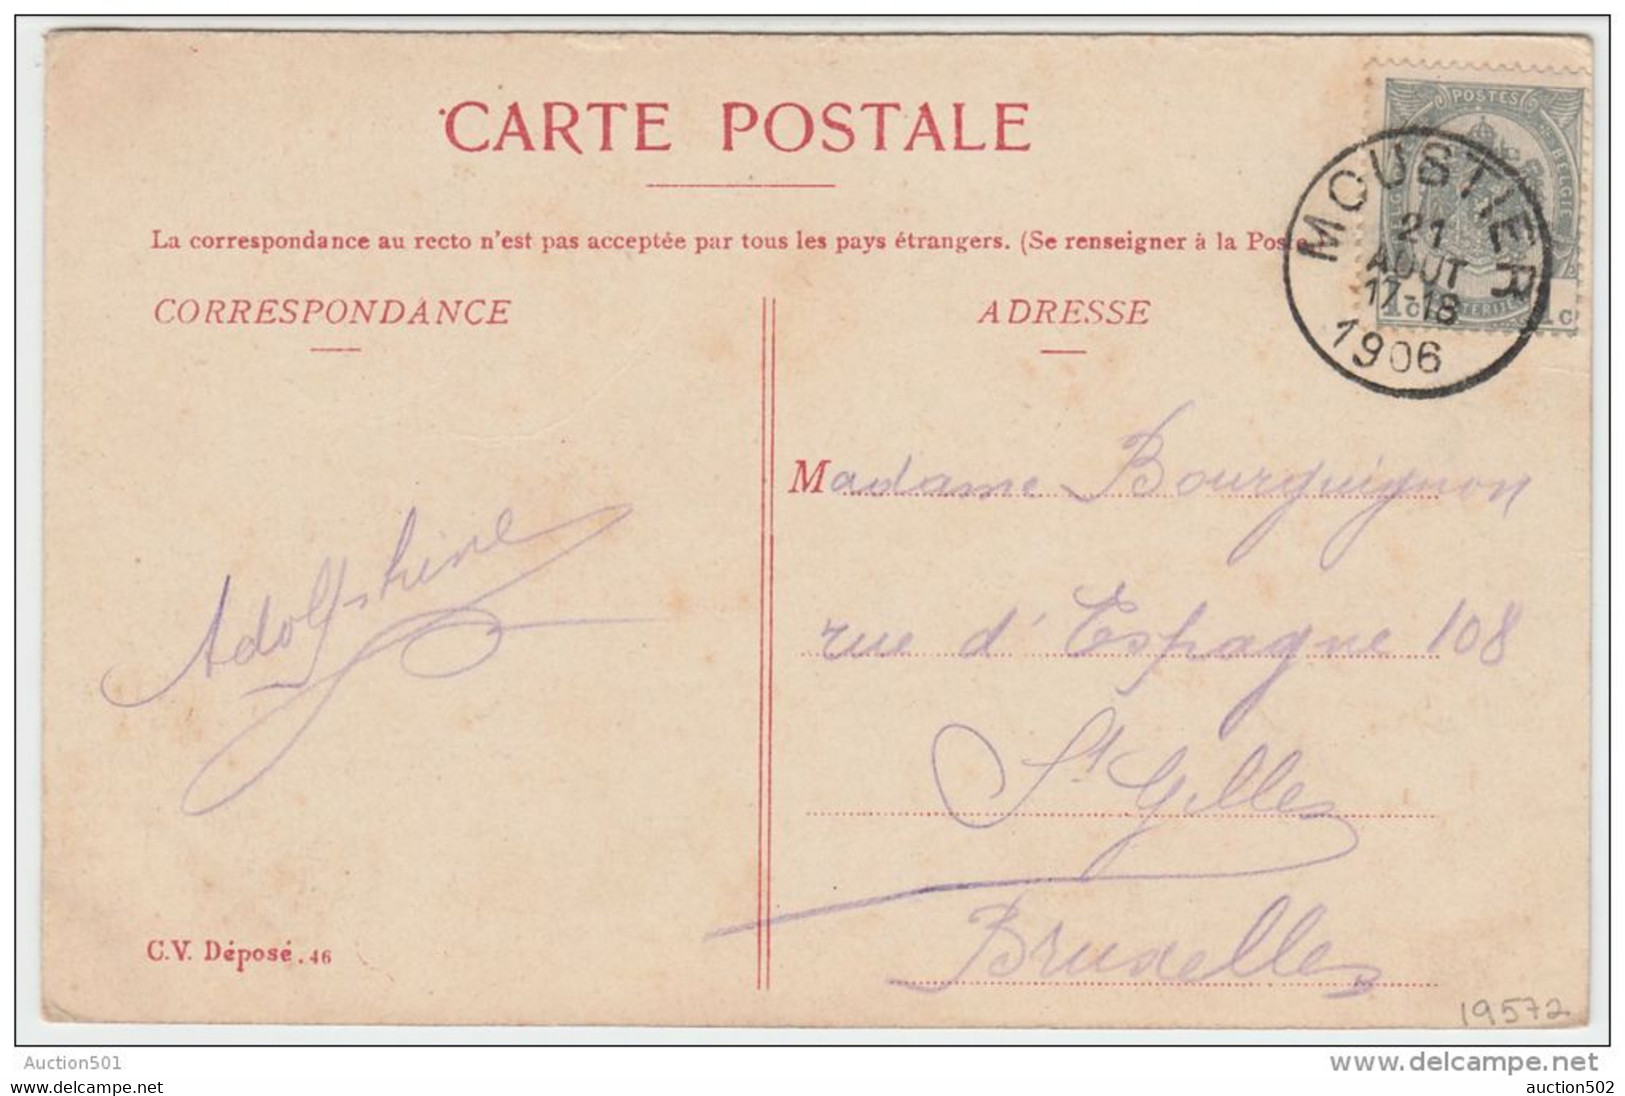 CARTE POSTALE
La correspondance au recto n'est pas acceptée par tous les pays étrangers. (Se renseigner à la Poste
CORRESPONDANCE
ADRESSE
POSTES
MOUSTIER
21
AOUT
17-18
1906
1c
Madame Bourguignon
rue d'Espagne 108
St Gilles
Bruxelles
Adolphine
C.V. Déposé. 46
19572
Auction501
www.delcampe.net
auction502
auction502